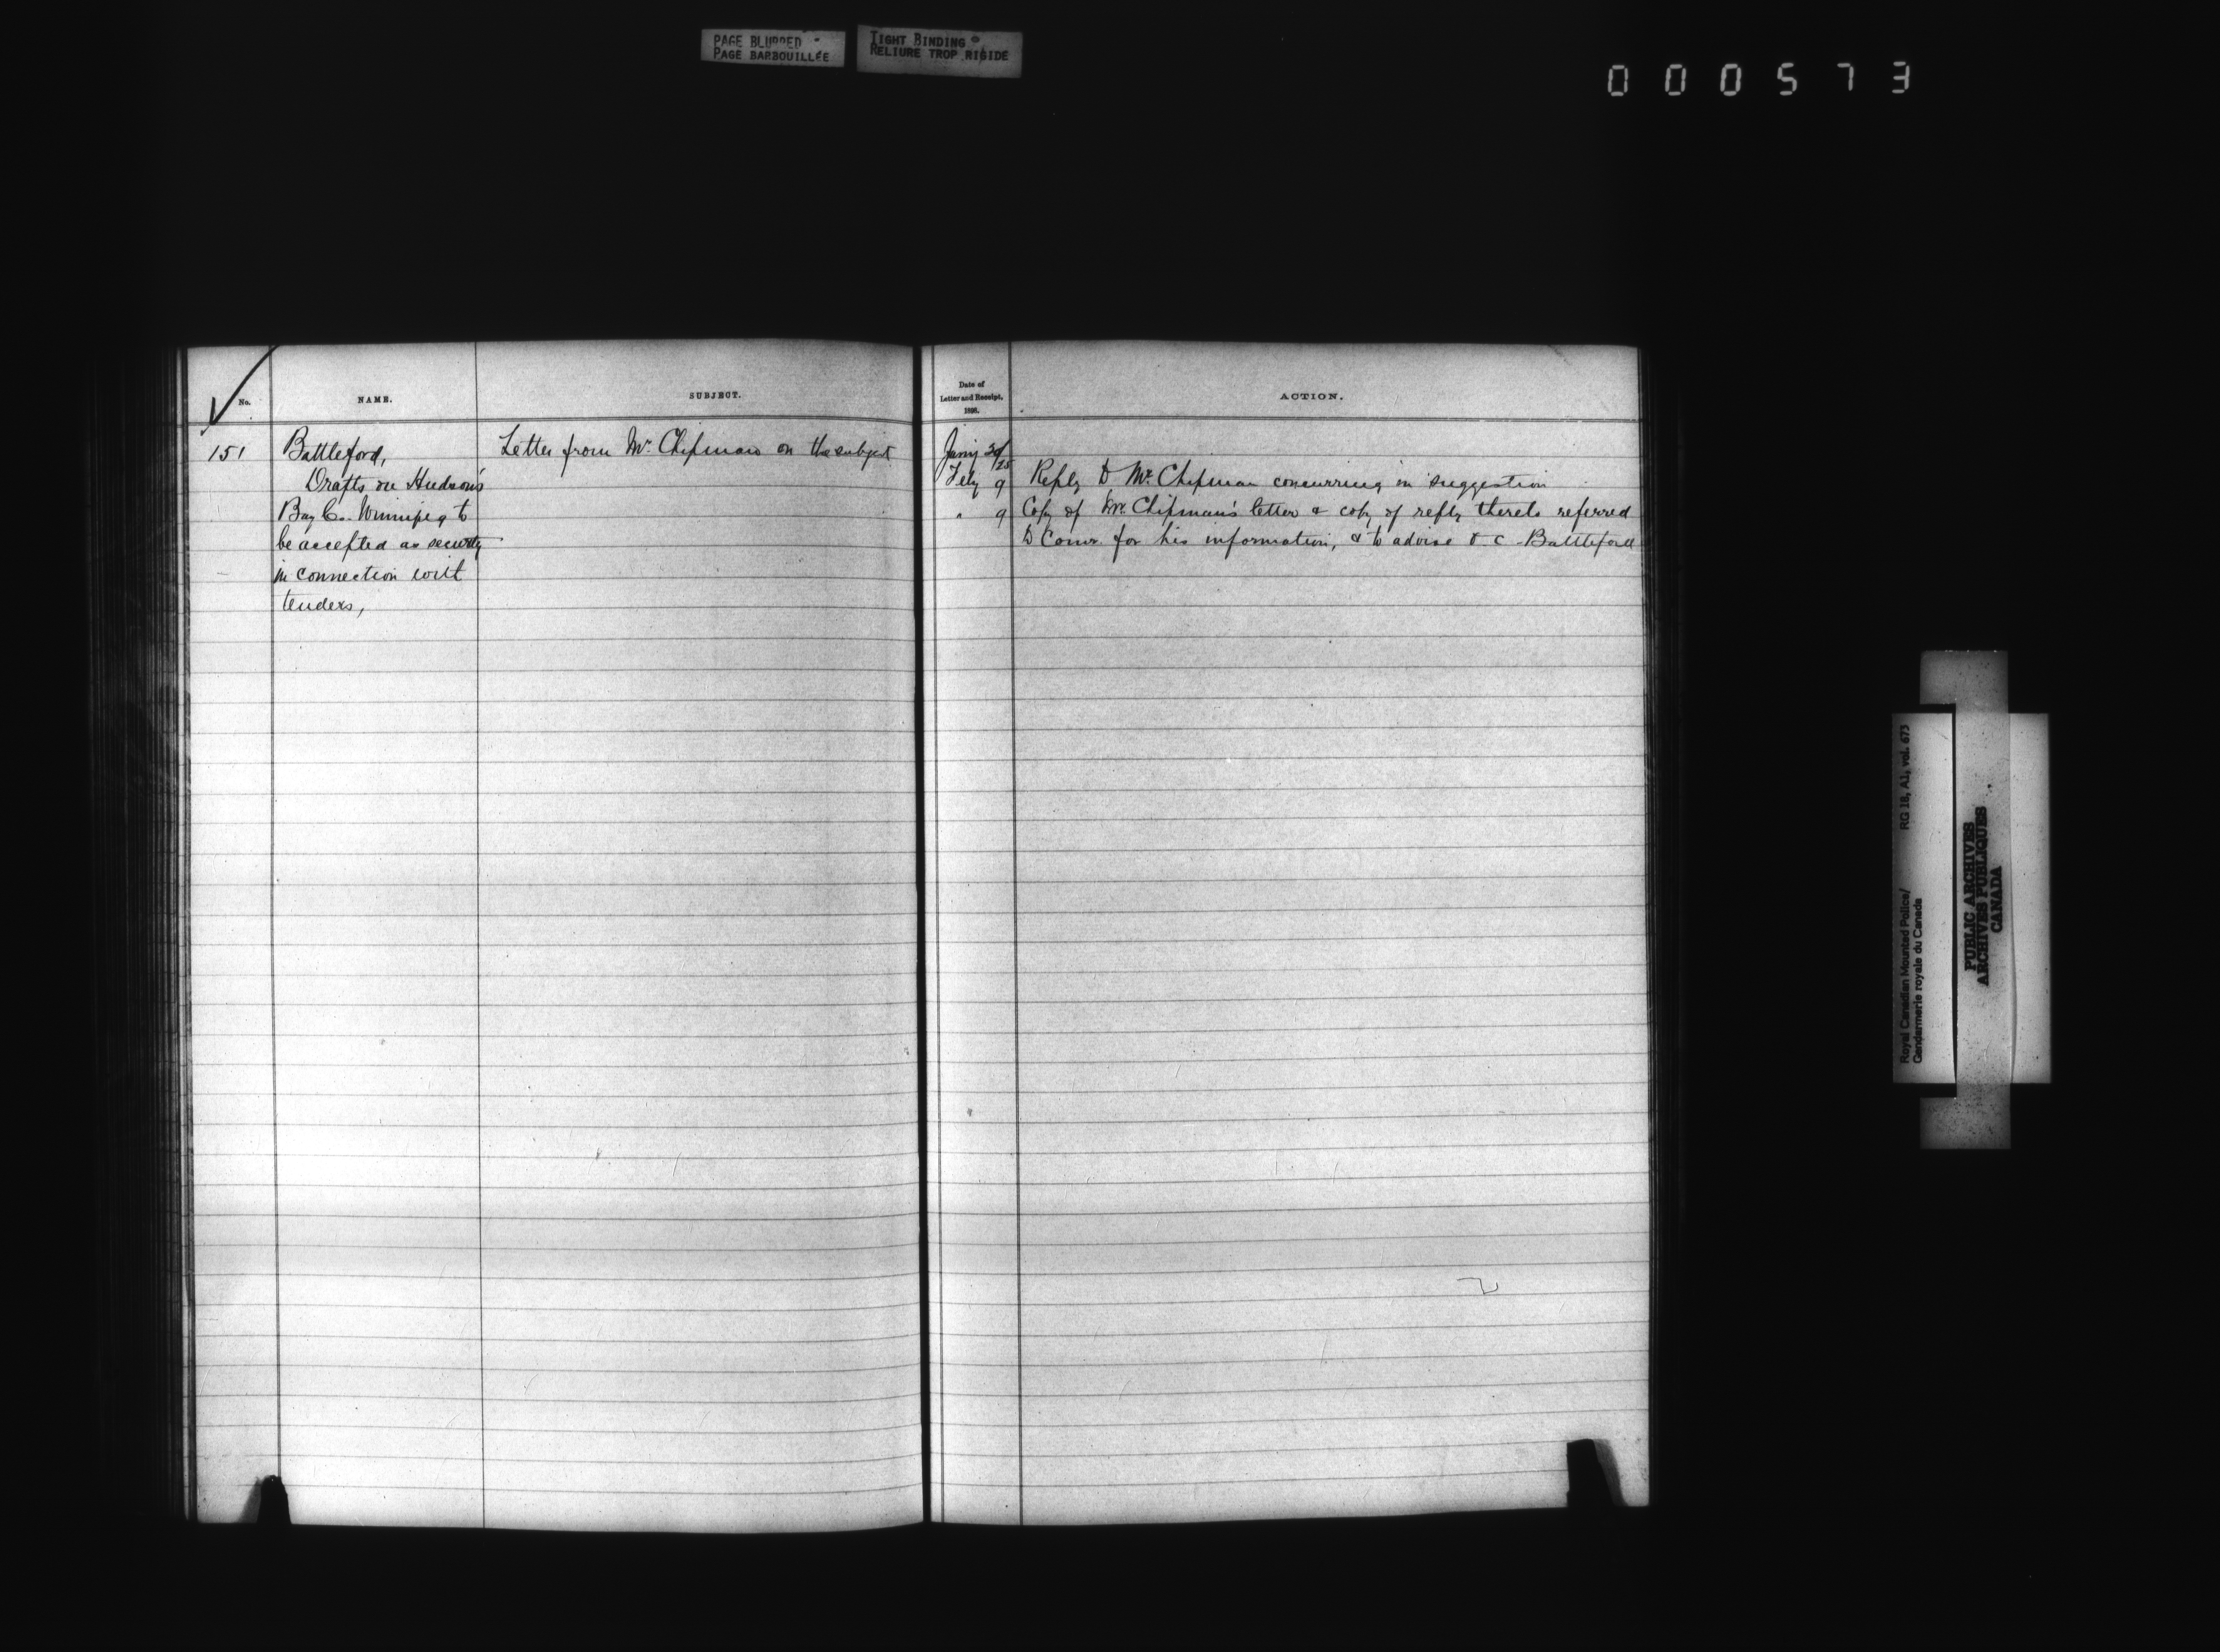 PAGE BLURRED
PAGE BARBOUILLÉE
TIGHT BINDING
RELIURE TROP RIGIDE
000573
No.
NAME.
SUBJECT.
Date of
Letter and Receipt.
1898.
ACTION.
151
Battleford,
Drafts on Hudson's
Bay Co. Winnipeg to
be accepted as security
in connection with
tenders,
Letter from Mr. Chipman on the subject
Jany 20/25
Feby 9
" 9
Reply to Mr. Chipman concurring in suggestion
Copy of Mr. Chipman's letter & copy of reply thereto referred
to Comr. for his information, & to advise O.C. Battleford
Royal Canadian Mounted Police/ RG 18, A1, vol. 673
Gendarmerie royale du Canada
PUBLIC ARCHIVES
ARCHIVES PUBLIQUES
CANADA